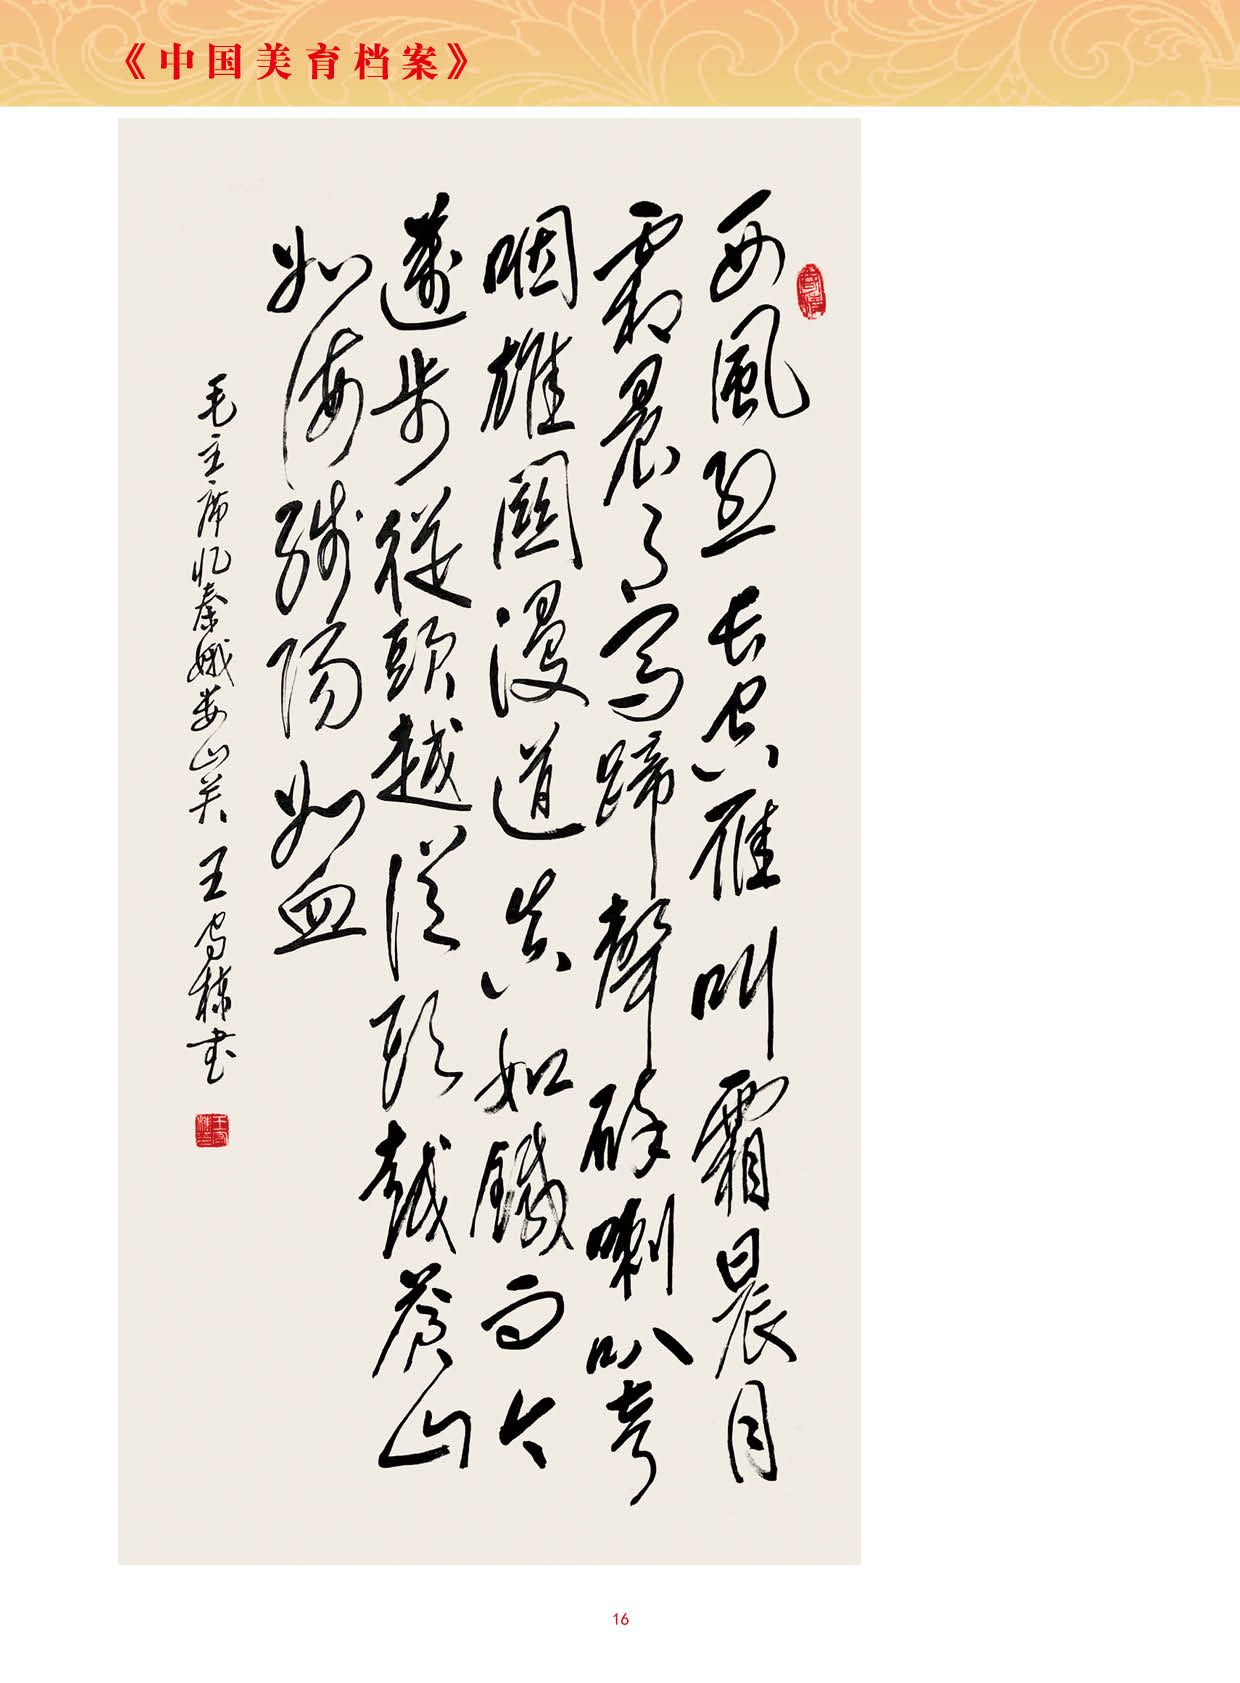 《中国美育档案》
西風烈长空雁叫霜晨月
霜晨月马蹄聲碎喇叭声
咽雄關漫道真如鐵而今
邁步從頭越從頭越蒼山
如海残陽如血
毛主席忆秦娥娄山关 王栋书
16